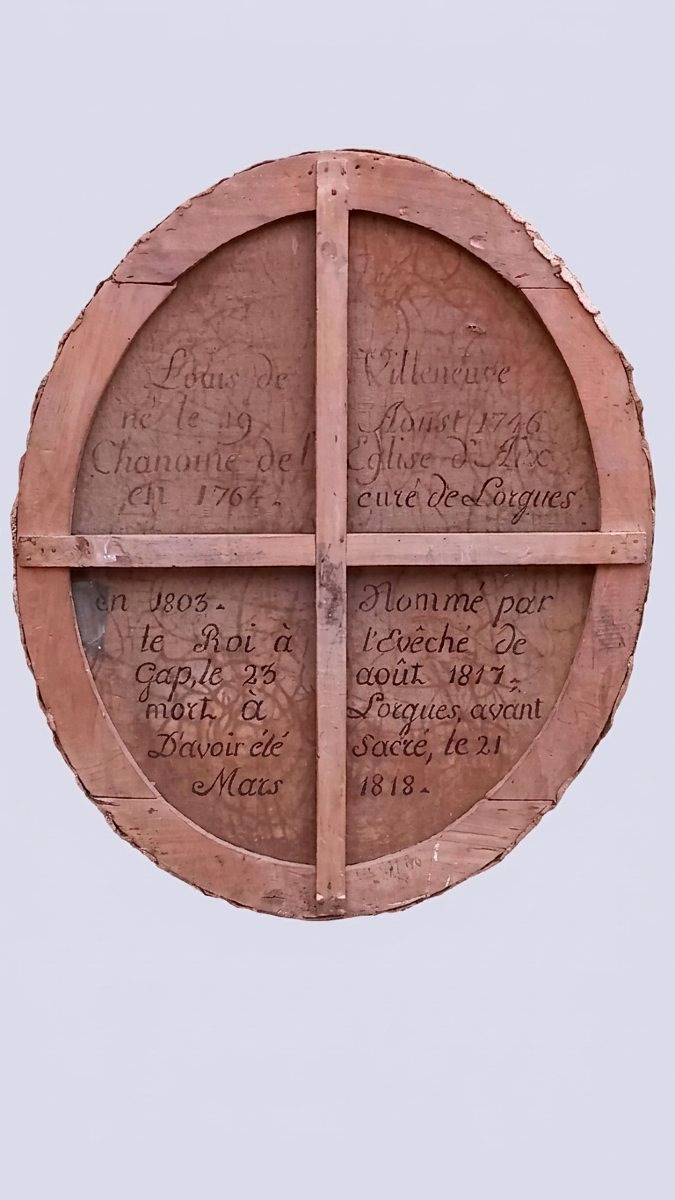 Louis de Villeneuve
né le 19 Aoust 1746
Chanoine de l'Eglise d'Aix
en 1764. curé de Lorgues
en 1803. Nommé par
le Roi à l'Evêché de
Gap, le 23 août 1817.
mort à Lorgues, avant
D'avoir été Sacré, le 21
Mars 1818.